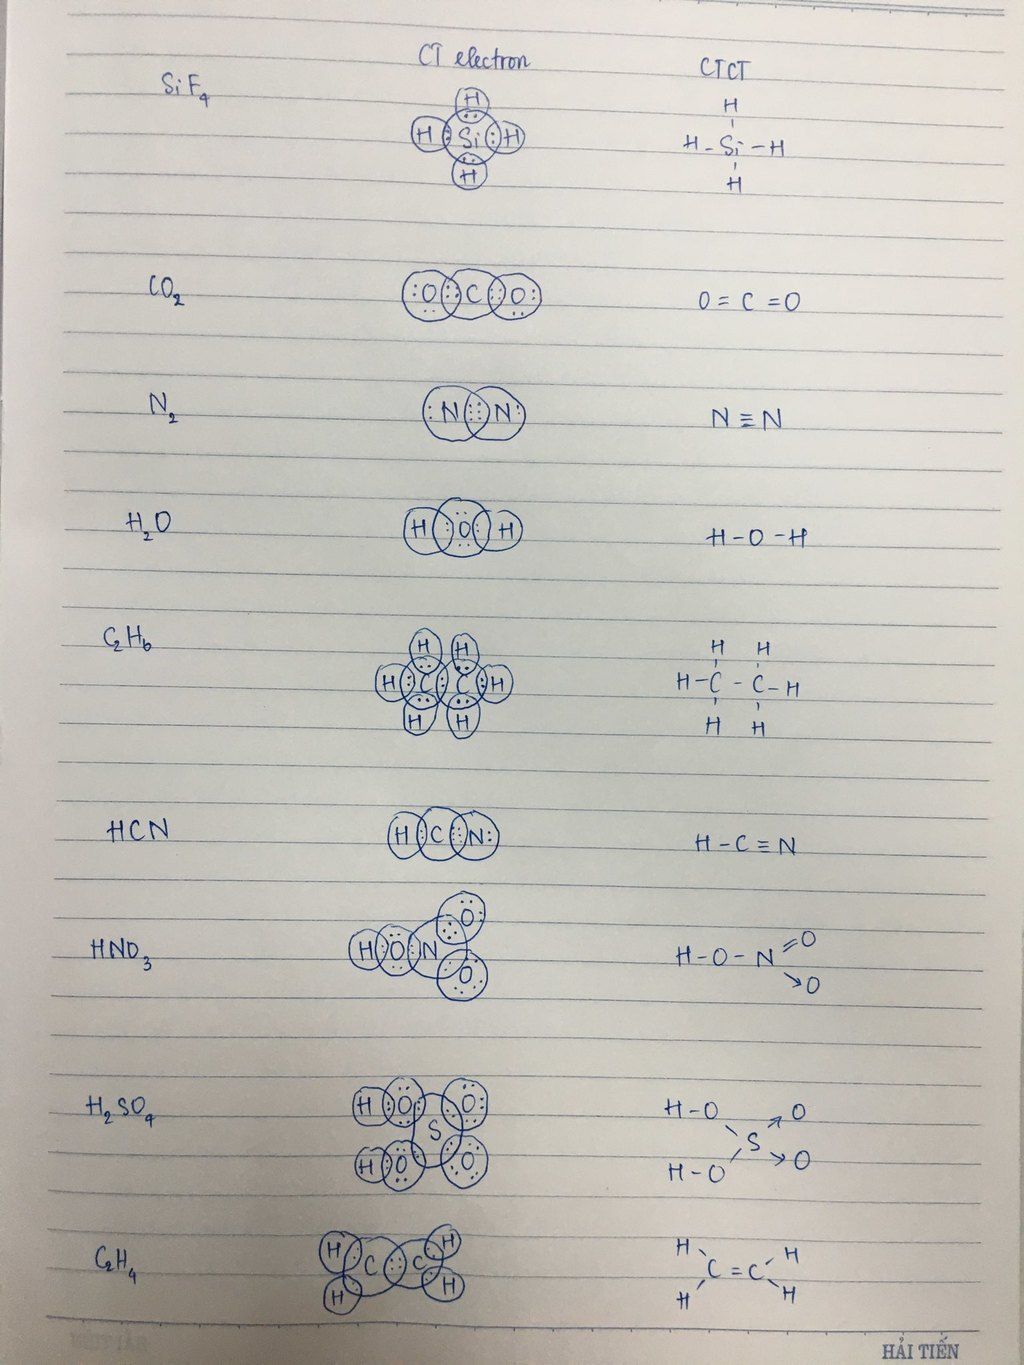 CT electron CTCT
SiF4
H
H : Si : H
H
H
H - Si - H
H
CO2 :O::C::O: O = C = O
N2 :N:::N: N ≡ N
H2O H:O:H H - O - H
C2H6
H H
H : C : C : H
H H
H H
H - C - C - H
H H
HCN H:C:::N: H - C ≡ N
HNO3
O
H O N
O
H - O - N = O
→ O
H2SO4
H O O
S
H O O
H - O → O
S
H - O → O
C2H4
H H
C :: C
H H
H H
C = C
H H
HẢI TIẾN